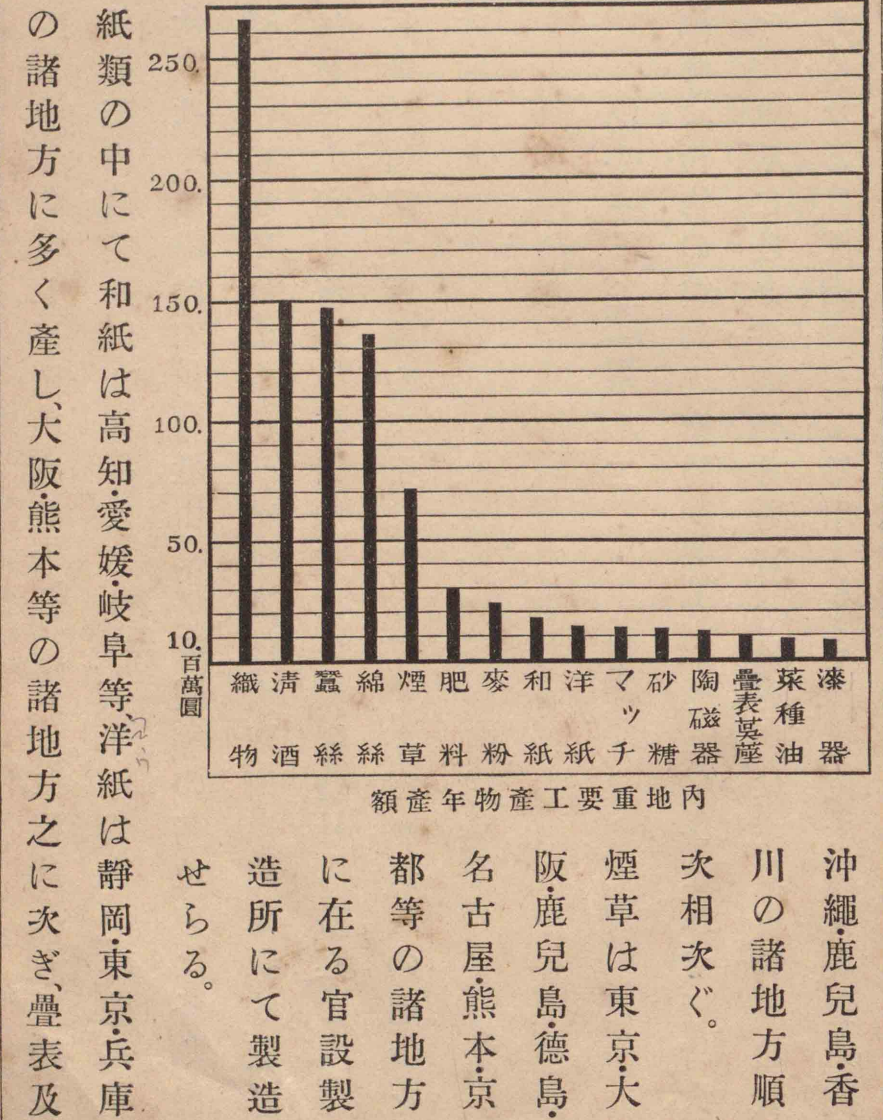 250.
200.
150.
100.
50.
10.
百萬圓
織物
淸酒
蠶絲
綿絲
煙草
肥料
麥粉
和紙
洋紙
マッチ
砂糖
陶磁器
疊表茣蓙
菜種油
漆器
額產年物產工要重地內
沖繩·鹿兒島·香
川の諸地方順
次相次ぐ。
煙草は東京·大
阪·鹿兒島·德島·
名古屋·熊本·京
都等の諸地方
に在る官設製
造所にて製造
せらる。
紙類の中にて和紙は高知·愛媛·岐阜等、洋紙は靜岡·東京·兵庫
の諸地方に多く產し、大阪·熊本等の諸地方之に次ぎ、疊表及